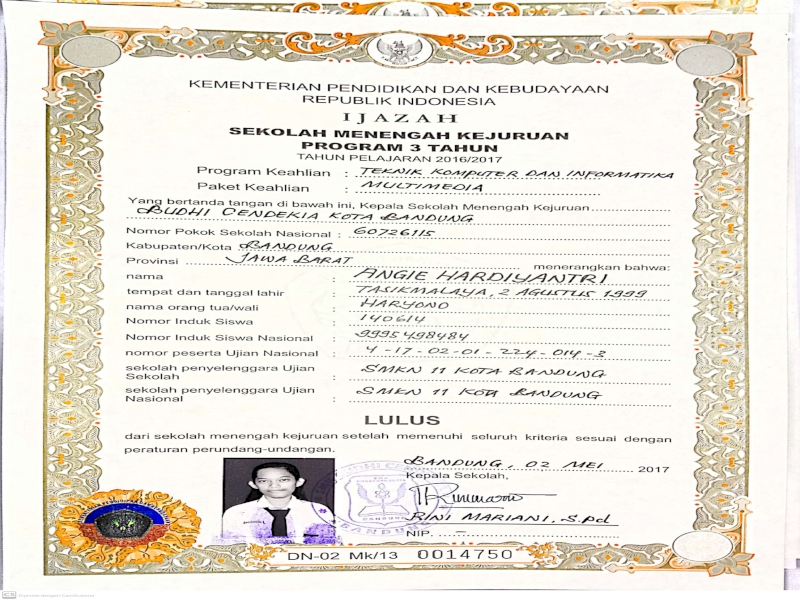 KEMENTERIAN PENDIDIKAN DAN KEBUDAYAAN
REPUBLIK INDONESIA
IJAZAH
SEKOLAH MENENGAH KEJURUAN
PROGRAM 3 TAHUN
TAHUN PELAJARAN 2016/2017
Program Keahlian : TEKNIK KOMPUTER DAN INFORMATIKA
Paket Keahlian : MULTIMEDIA
Yang bertanda tangan di bawah ini, Kepala Sekolah Menengah Kejuruan
BUDHI CENDEKIA KOTA BANDUNG
Nomor Pokok Sekolah Nasional : 60726115
Kabupaten/Kota BANDUNG
Provinsi JAWA BARAT menerangkan bahwa:
nama : ANGIE HARDIYANTRI
tempat dan tanggal lahir : TASIKMALAYA, 2 AGUSTUS 1999
nama orang tua/wali : HARYONO
Nomor Induk Siswa : 140614
Nomor Induk Siswa Nasional : 9995498484
nomor peserta Ujian Nasional : 4-17-02-01-224-014-3
sekolah penyelenggara Ujian
Sekolah : SMKN 11 KOTA BANDUNG
sekolah penyelenggara Ujian
Nasional : SMKN 11 KOTA BANDUNG
LULUS
dari sekolah menengah kejuruan setelah memenuhi seluruh kriteria sesuai dengan
peraturan perundang-undangan.
BANDUNG, 02 MEI 2017
Kepala Sekolah,
RINI MARIANI, S.Pd
NIP. -
BANDUNG
DN-02 Mk/13 0014750